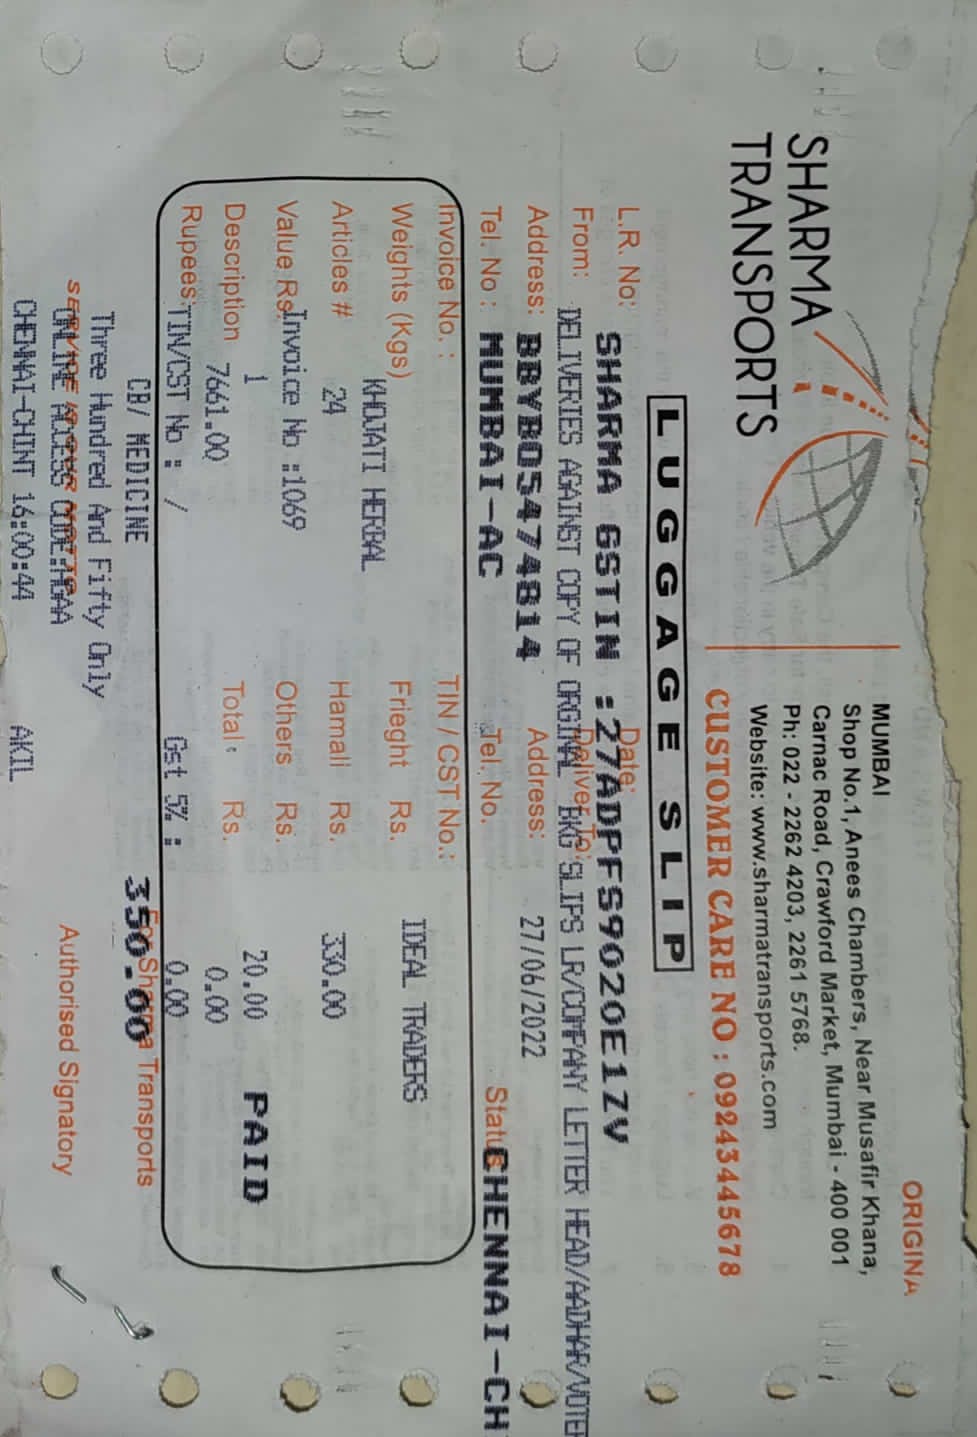 ORIGINA
SHARMA
TRANSPORTS
MUMBAI
Shop No.1, Anees Chambers, Near Musafir Khana,
Carnac Road, Crawford Market, Mumbai - 400 001
Ph: 022 - 2262 4203, 2261 5768.
Website: www.sharmatransports.com
CUSTOMER CARE NO : 09243445678
LUGGAGE SLIP
L.R. No: Date:
SHARMA GSTIN :27ADPFS9020E1ZV
From: Deliver To:
DELIVERIES AGAINST COPY OF ORGINAL BKG SLIPS LR/COMPANY LETTER HEAD/AADHAR/VOTER
Address: BBYBO5474814 Address: 27/06/2022
Tel. No : MUMBAI-AC Tel. No. Status CHENNAI-CH
Invoice No. : TIN / CST No.:
Weights (Kgs) Frieght Rs. IDEAL TRADERS
KHOJATI HERBAL
Articles # 24 Hamali Rs. 330.00
Value Rs. Invoice No :1069 Others Rs.
Description 1 Total : Rs. 20.00 PAID
7661.00 0.00
Rupees: TIN/CST No : / Gst 5% : 0.00
CB/ MEDICINE 350.00
For Sharma Transports
Three Hundred And Fifty Only
SERVICE IS OUR MOTTO
ONLINE ACCESS CODE:
Authorised Signatory
CHENNAI-CHINT 16:00:44 AKIL